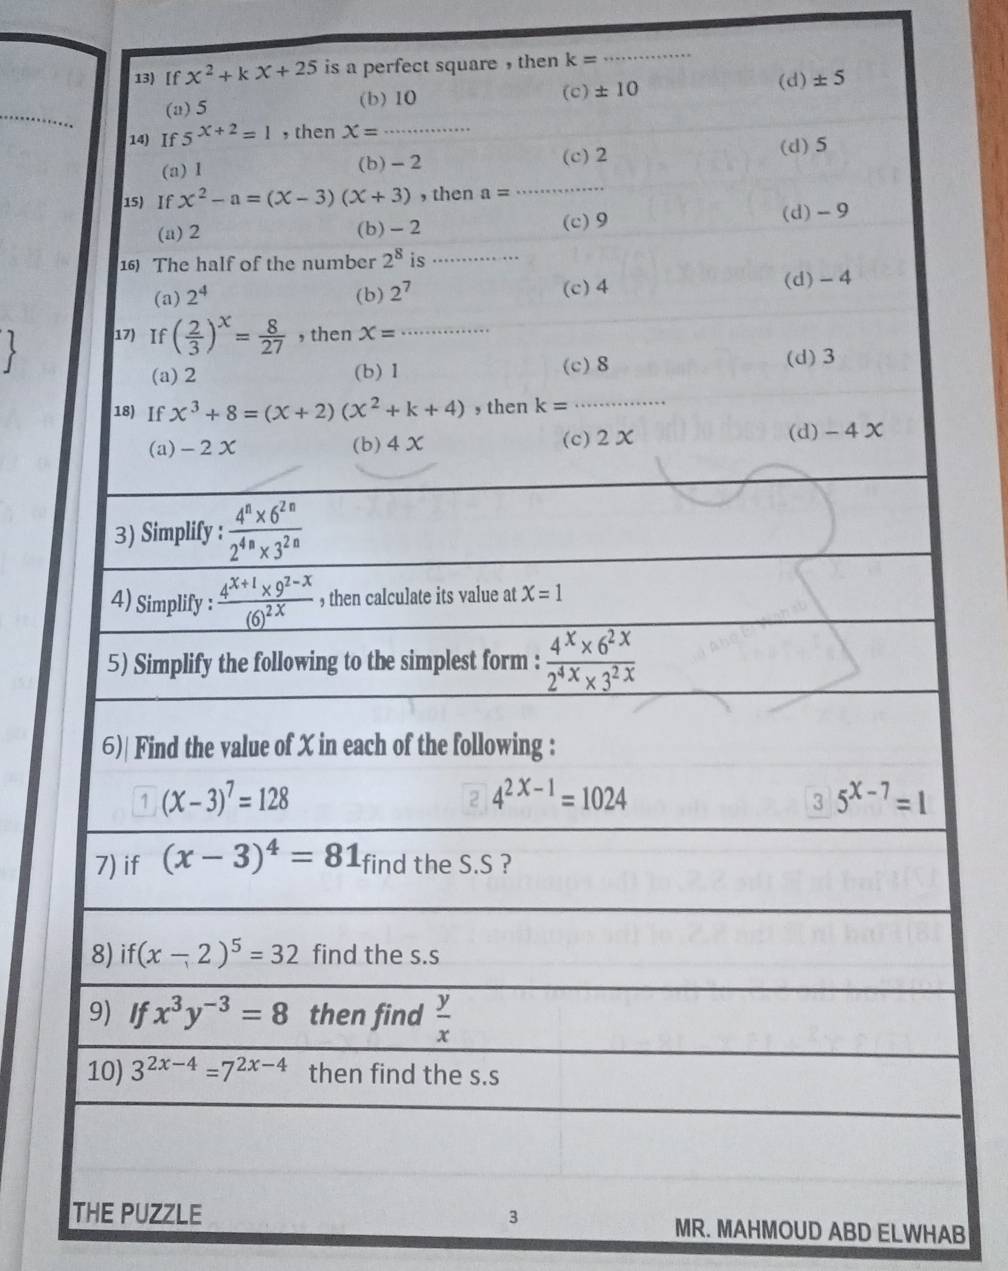 13) If x² + k x + 25 is a perfect square , then k = ..............
(a) 5 (b) 10 (c) ± 10 (d) ± 5
14) If 5^(x + 2) = 1 , then x = ..............
(a) 1 (b) – 2 (c) 2 (d) 5
15) If x² – a = (x – 3) (x + 3) , then a = ..............
(a) 2 (b) – 2 (c) 9 (d) – 9
16) The half of the number 2⁸ is ..............
(a) 2⁴ (b) 2⁷ (c) 4 (d) – 4
17) If (2/3)^x = 8/27 , then x = ..............
(a) 2 (b) 1 (c) 8 (d) 3
18) If x³ + 8 = (x + 2) (x² + k + 4) , then k = ..............
(a) – 2 x (b) 4 x (c) 2 x (d) – 4 x
3) Simplify : (4^n × 6^(2n)) / (2^(4n) × 3^(2n))
4) Simplify : (4^(x+1) × 9^(2–x)) / (6)^(2x) , then calculate its value at x = 1
5) Simplify the following to the simplest form : (4^x × 6^(2x)) / (2^(4x) × 3^(2x))
6) Find the value of X in each of the following :
1 (x – 3)⁷ = 128 2 4^(2x – 1) = 1024 3 5^(x – 7) = 1
7) if (x − 3)⁴ = 81 find the S.S ?
8) if(x − 2 )⁵ = 32 find the s.s
9) If x³y⁻³ = 8 then find y/x
10) 3^(2x−4) =7^(2x−4) then find the s.s
THE PUZZLE 3 MR. MAHMOUD ABD ELWHAB